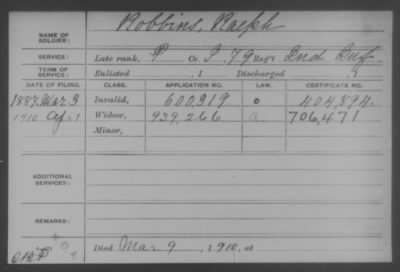 NAME OF SOLDIER: Robbins, Ralph
SERVICE: Late rank, P Co. I, 79 Reg't Ind Inf.
TERM OF SERVICE: Enlisted , 1 Discharged , 1
DATE OF FILING. CLASS. APPLICATION NO. LAW. CERTIFICATE NO.
1887 Mar 3 Invalid, 600,919 404,894
1910 Apr 1 Widow, 939,266 a 706,471
Minor,
ADDITIONAL SERVICES:
REMARKS:
Died Mar 9, 1910, at